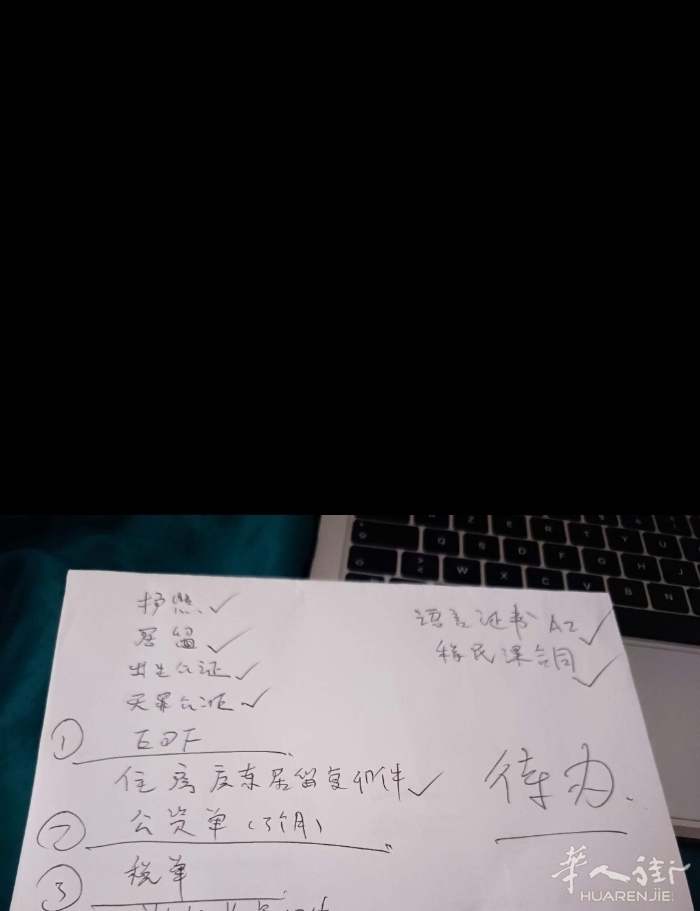 护照 ✓
居留 ✓
出生公证 ✓
无罪公证 ✓
① EDF
住房房东居留复印件 ✓
② 公资单(3个月)
③ 税单
语言证书 A2 ✓
移民课合同 ✓
待办.
華人街
HUARENJIE